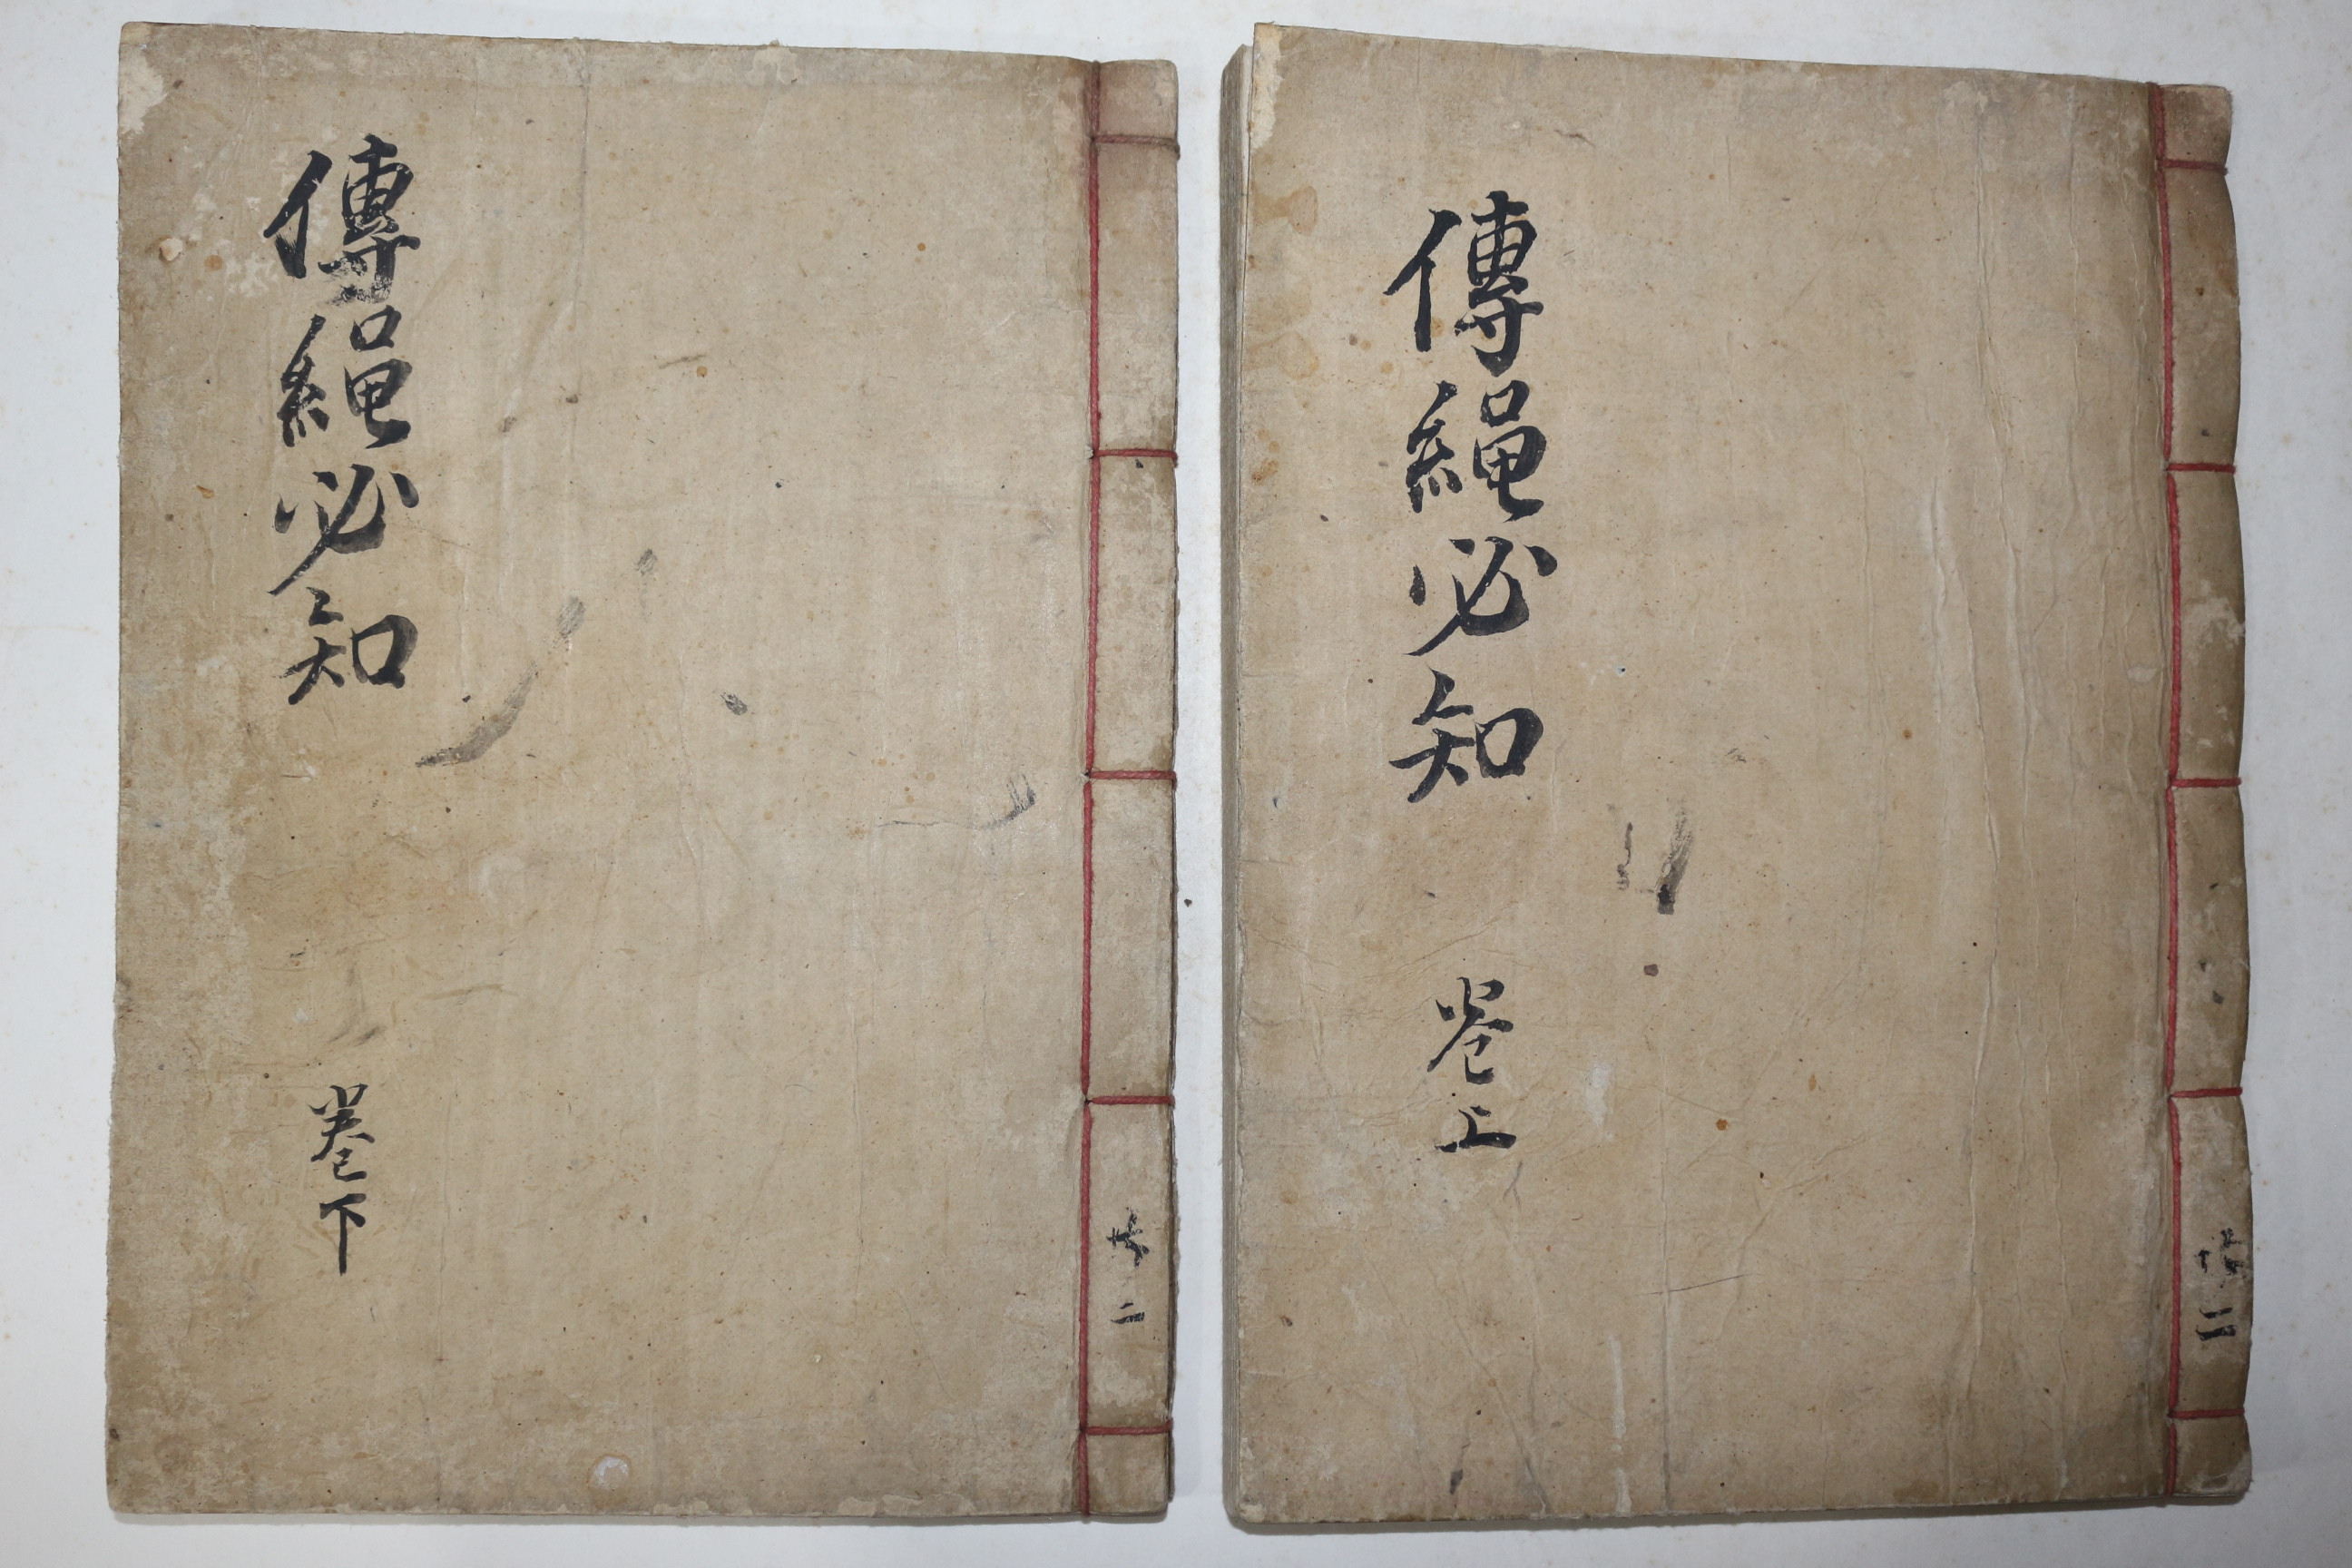 傳繩必知
卷上
共二
傳繩必知
卷下
共二